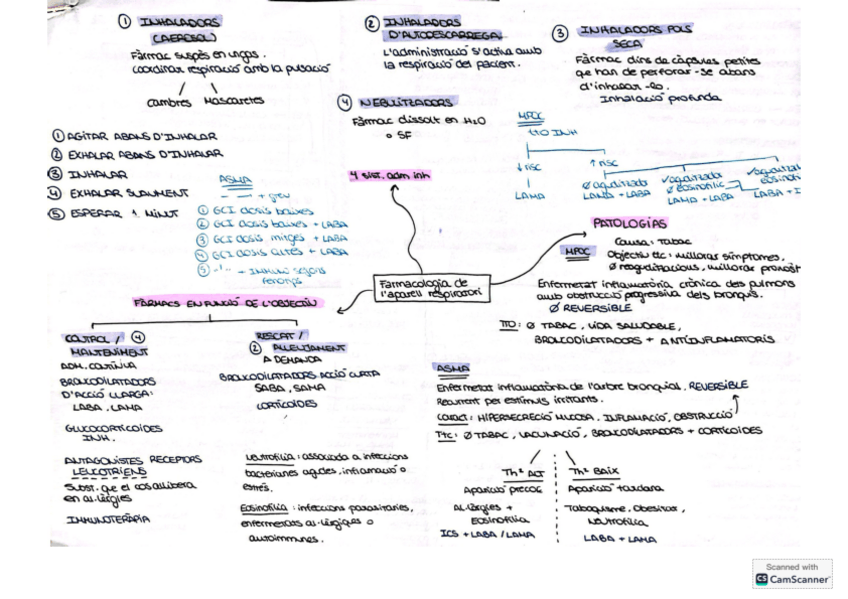 ① INHALADORS
(AEROSOL)
Fàrmac suspès en un gas.
coordinar respiració amb la pulsació
cambres Mascaretes
② INHALADORS
D'AUTODESCARREGA
L'administració s'activa amb
la respiració del pacient.
③ INHALADORS POLS
SECA
Fàrmac dins de càpsules petites
que han de perforar-se abans
d'inhalar-lo.
Inhalació profunda
④ NEBULITZADORS
Fàrmac dissolt en H2O
o SF
① AGITAR ABANS D'INHALAR
② EXHALAR ABANS D'INHALAR
③ INHALAR
④ EXHALAR SUAUMENT
⑤ ESPERAR 1 MINUT
ASMA
① GCI dosis baixes
② GCI dosis baixes + LABA
③ GCI dosis mitges + LABA
④ GCI dosis altes + LABA
⑤ -'- + INMUNO segons
fenotip
4 sist. adm inh
MPOC
tto INH
↓ risc
LAMA
↑ risc
Ø aguditzada
LAMA + LABA
✓ aguditzada
Ø eosinofilic
LAMA + LABA
✓ aguditzat
eosinofi
LABA + I
PATOLOGÍAS
MPOC
Causa: Tabac
Objectiu ttc: millorar símptomes,
Ø reaguditzacions, millorar pronòst
Enfermetat inflamatòria, crònica dels pulmons
amb obstrucció progressiva dels bronquis.
Ø REVERSIBLE
TTO: Ø TABAC, VIDA SALUDABLE,
BRONCODILATADORS + ANTIINFLAMATORIS
Farmacologia de
l'aparell respiratori
FÀRMACS EN FUNCIÓ DE L'OBJECTIU
CONTROL / ④
MANTENIMENT
ADM. CONTÍNUA
BRONCODILATADORS
D'ACCIÓ LLARGA:
LABA, LAMA
GLUCOCORTICOIDES
INH.
ANTAGONISTES RECEPTORS
LEUCOTRIENS
Subst. que el cos allibera
en al·lèrgies
IMMUNOTERÀPIA
RESCAT /
② ALLEUJAMENT
A DEMANDA
BRONCODILATADORS ACCIÓ CURTA
SABA, SAMA
CORTICOIDES
Neutrofilia: associada a infeccions
bacterianes agudes, inflamació o
estrés.
Eosinofilia: infeccions parasitaries,
enfermetats al·lèrgiques o
autoimmunes.
ASMA
Enfermetat inflamatòria de l'arbre bronquial, REVERSIBLE
Recurrent per estímuls irritants.
CARACT: HIPERSECRECIÓ MUCOSA, INFLAMACIÓ, OBSTRUCCIÓ
Ttc: Ø TABAC, VACUNACIÓ, BRONCODILATADORS + CORTICOIDES
Th² ALT
Aparició precoç
Al·lèrgies +
Eosinofilia
ICS + LABA / LAMA
Th² BAIX
Aparició tardana
Tabaquisme, Obesitat,
Neutrofilia
LABA + LAMA
Scanned with
CS CamScanner